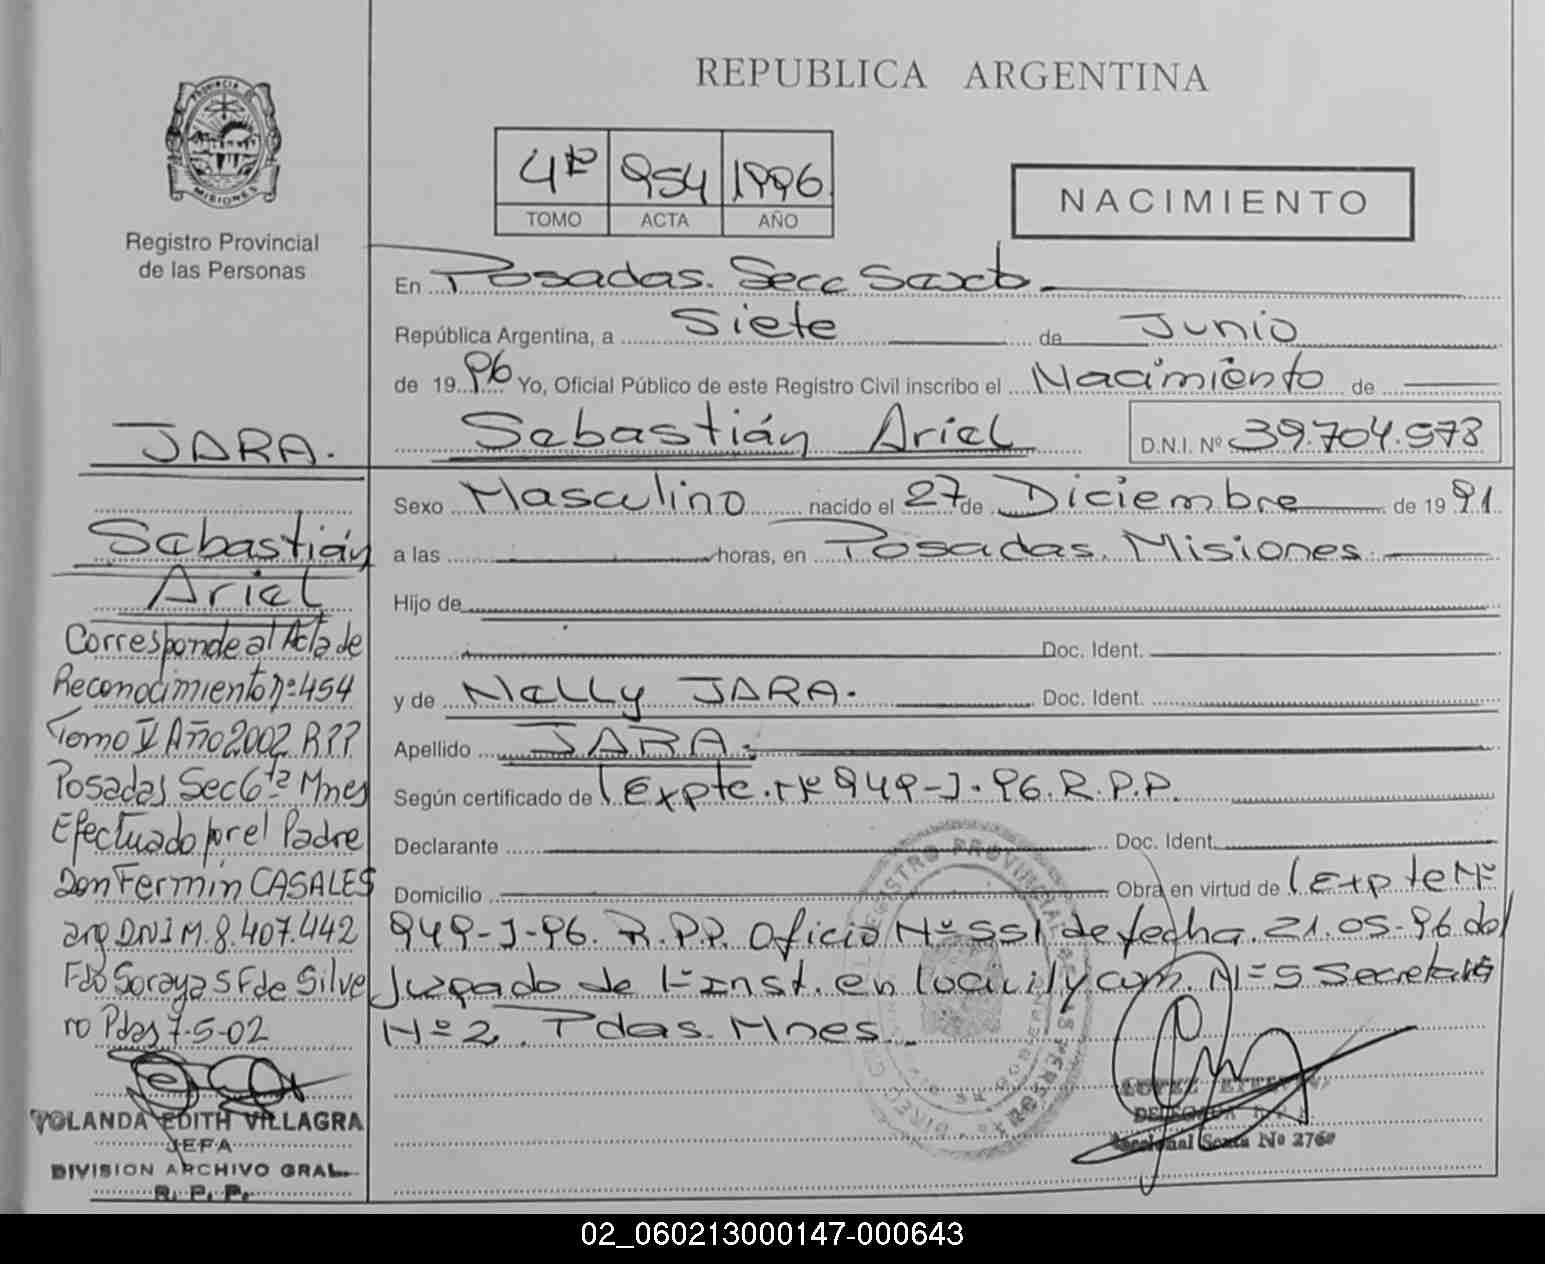 REPUBLICA ARGENTINA
PROVINCIA DE
MISIONES
Registro Provincial
de las Personas
4to 954 1996
TOMO ACTA AÑO
NACIMIENTO
En Posadas. Secc Sexta
República Argentina, a Siete de Junio
de 1996 Yo, Oficial Público de este Registro Civil inscribo el Nacimiento de
Sebastián Ariel D.N.I. Nº 39.704.578
Sexo Masculino nacido el 27 de Diciembre de 1991
a las horas, en Posadas. Misiones
Hijo de
Doc. Ident.
y de Nelly JARA. Doc. Ident.
Apellido JARA.
Según certificado de Expte. Nº 949-J-96. R.P.P.
Declarante Doc. Ident.
Domicilio Obra en virtud de Expte Nº
949-J-96. R.P.P. Oficio Nº 551 de fecha 21.05-96 del
Juzgado de 1º Inst. en lo civil y com. Nº 5 Secretaria
Nº 2. Pdas. Mnes.
JARA.
Sebastián
Ariel
Corresponde al Acta de
Reconocimiento nº 454
Tomo V Año 2002 R.P.P.
Posadas Sec 6ta Mnes
Efectuado por el Padre
Don Fermín CASALES
arg DNI M. 8.407.442
Fdo Soraya S F de Silve
ro Pdas 7-5-02
YOLANDA EDITH VILLAGRA
JEFA
DIVISION ARCHIVO GRAL.
R. P. P.
REGISTRO PROVINCIAL
PERSONAS
LOPEZ
Seccional Sexta Nº 2760
02_060213000147-000643